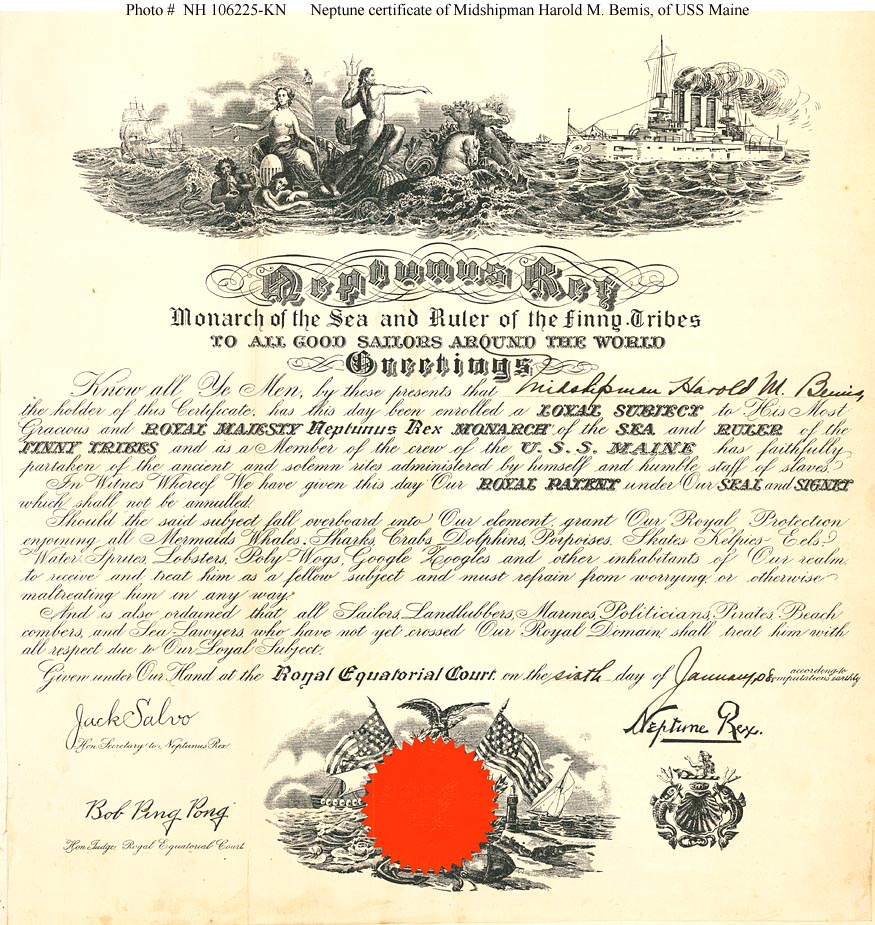 Photo # NH 106225-KN Neptune certificate of Midshipman Harold M. Bemis, of USS Maine
Neptunus Rex
Monarch of the Sea and Ruler of the Finny Tribes
TO ALL GOOD SAILORS AROUND THE WORLD
Greetings
Know all Ye Men, by these presents that Midshipman Harold M. Bemis,
the holder of this Certificate, has this day been enrolled a LOYAL SUBJECT to His Most
Gracious and ROYAL MAJESTY Neptunus Rex MONARCH of the SEA and RULER of the
FINNY TRIBES and as a Member of the crew of the U.S.S. MAINE has faithfully
partaken of the ancient and solemn rites administered by himself and humble staff of slaves.
In Witness Whereof We have given this day Our ROYAL PATENT under Our SEAL and SIGNET
which shall not be annulled.
Should the said subject fall overboard into Our element, grant Our Royal Protection
enjoining all Mermaids Whales, Sharks, Crabs, Dolphins, Porpoises, Skates Kelpies Eels,
Water Sprites, Lobsters, Poly-Wogs, Google Zoogles and other inhabitants of Our realm,
to receive and treat him as a fellow subject and must refrain from worrying or otherwise
maltreating him in any way.
And is also ordained that all Sailors, Landlubbers, Marines, Politicians, Pirates, Beach
combers, and Sea-Lawyers, who have not yet crossed Our Royal Domain shall treat him with
all respect due to Our Loyal Subject.
Given under Our Hand at the Royal Equatorial Court on the sixth day of January, 08. according to computations earthly
Jack Salvo
Hon. Secretary to Neptunus Rex
Neptune Rex.
Bob Ping Pong
Hon. Judge Royal Equatorial Court